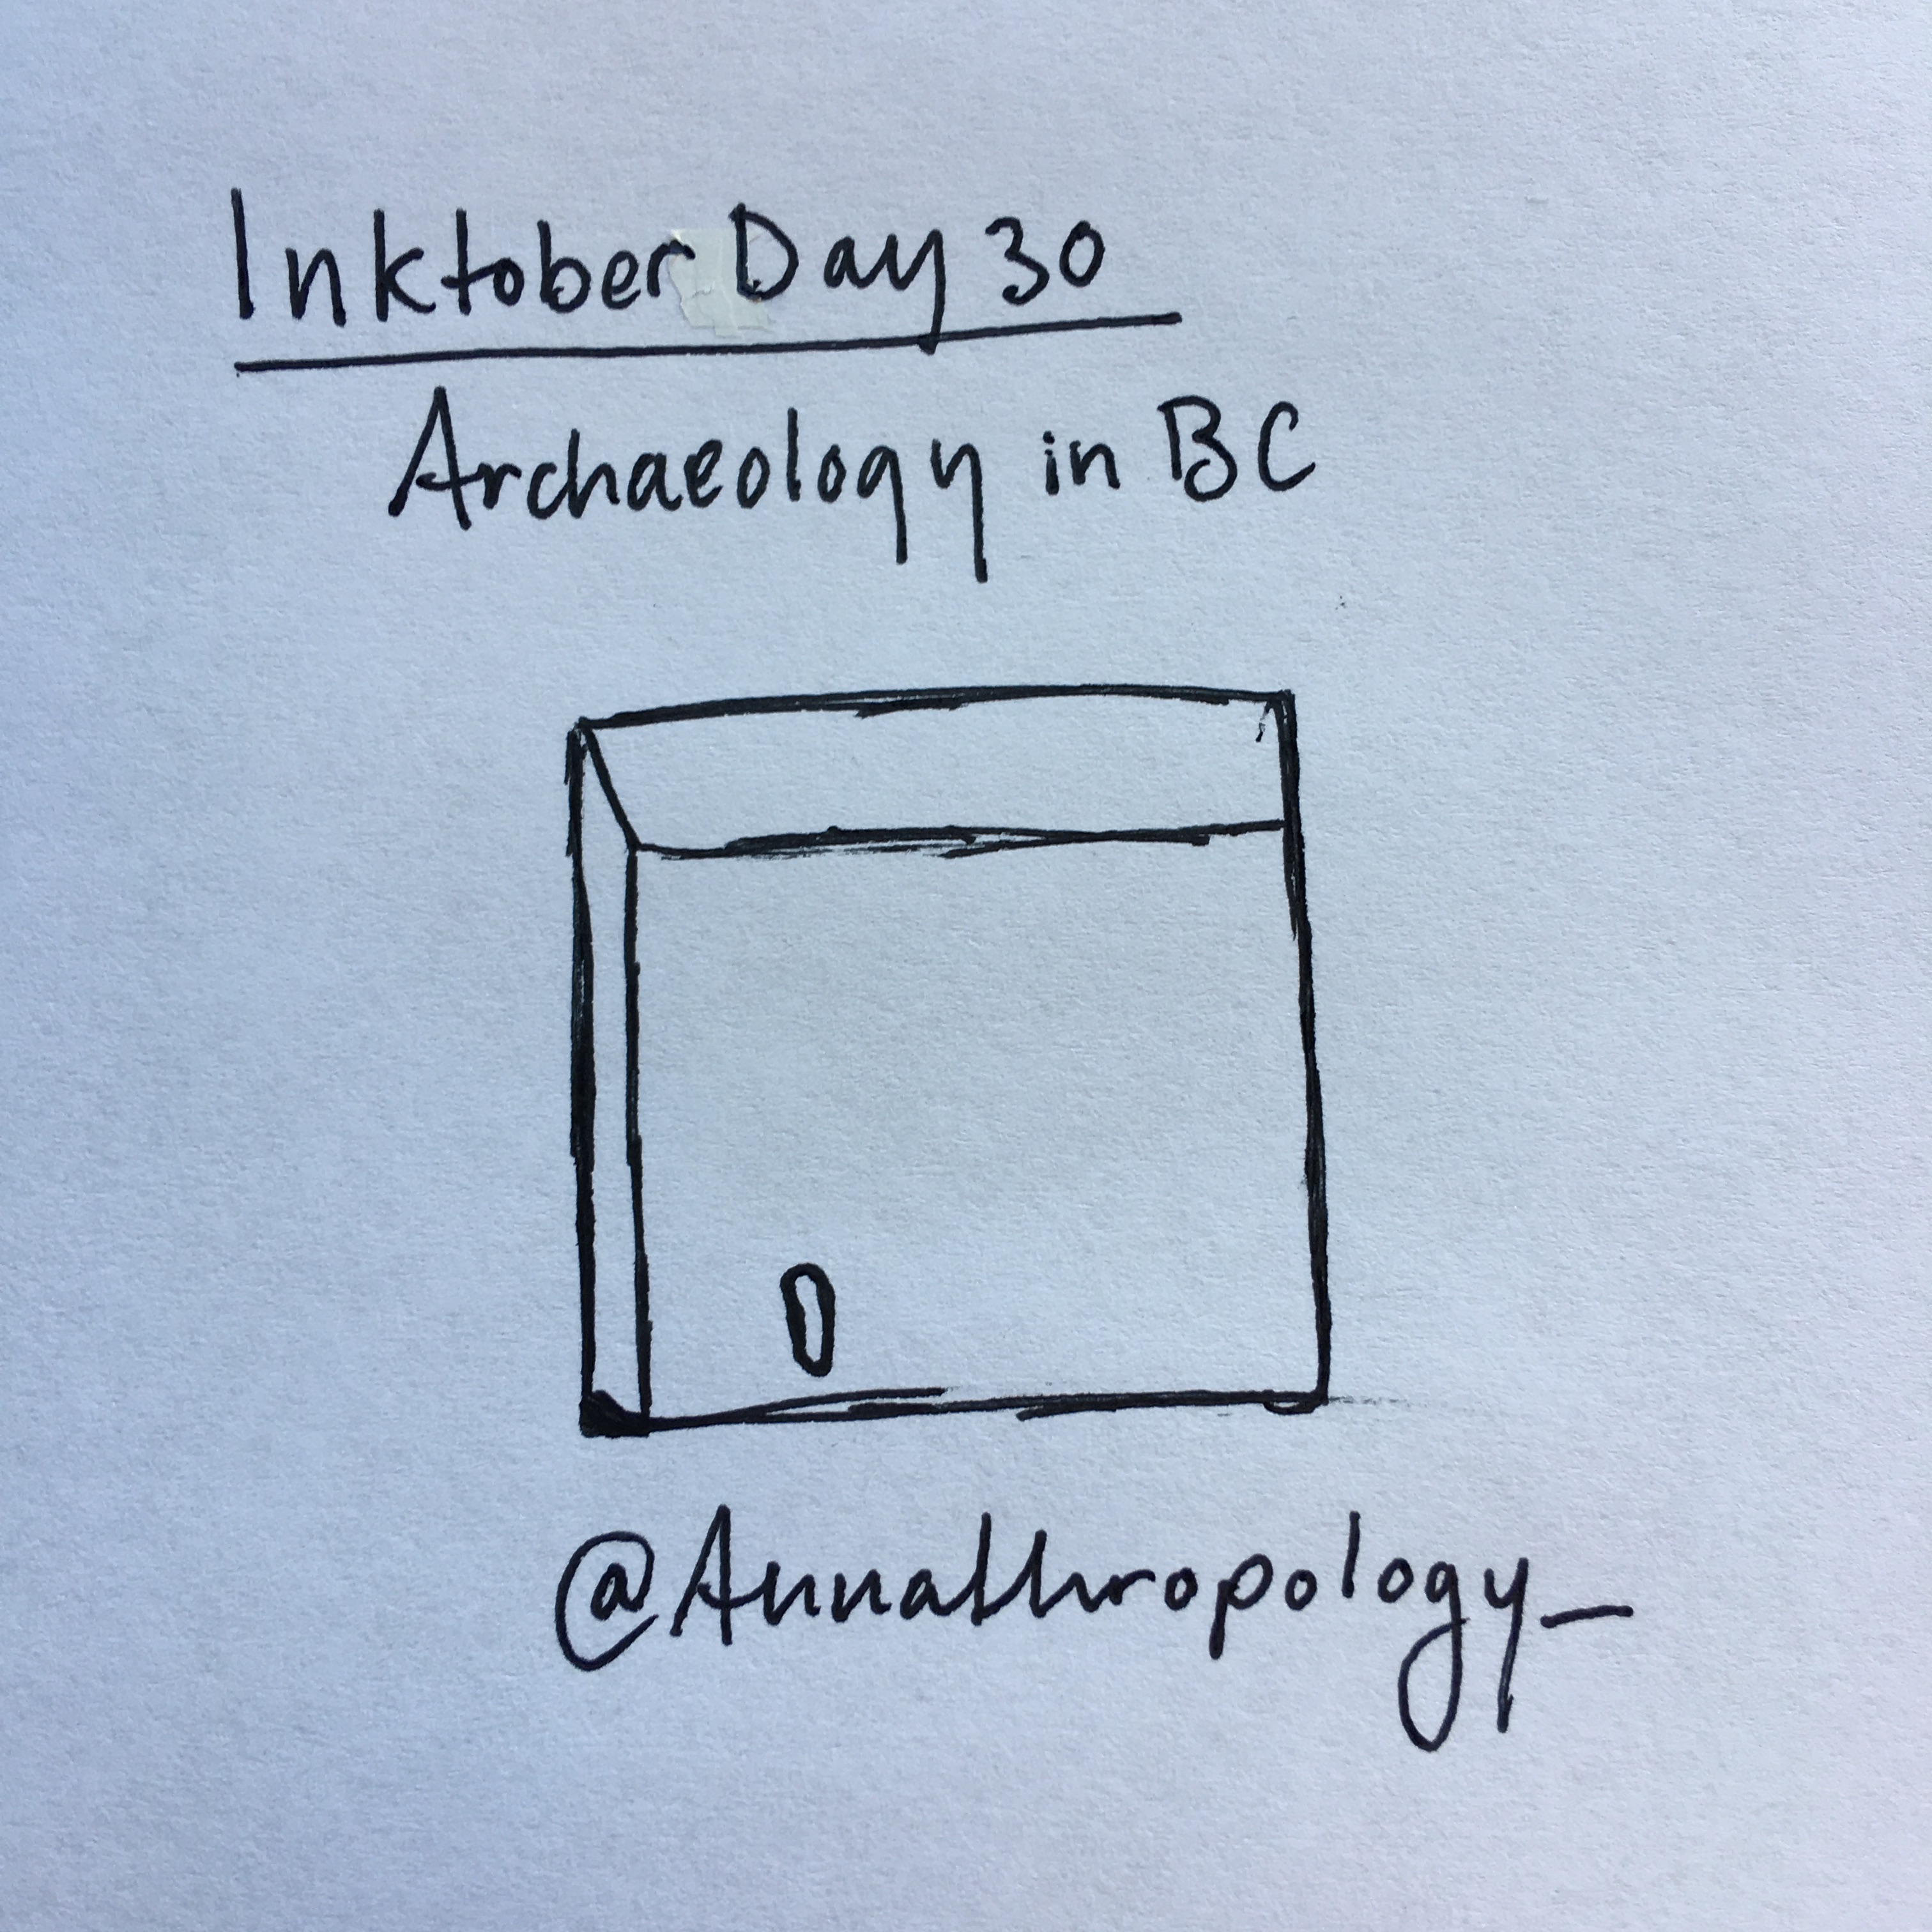 Inktober Day 30
Archaeology in BC
@Annathropology_